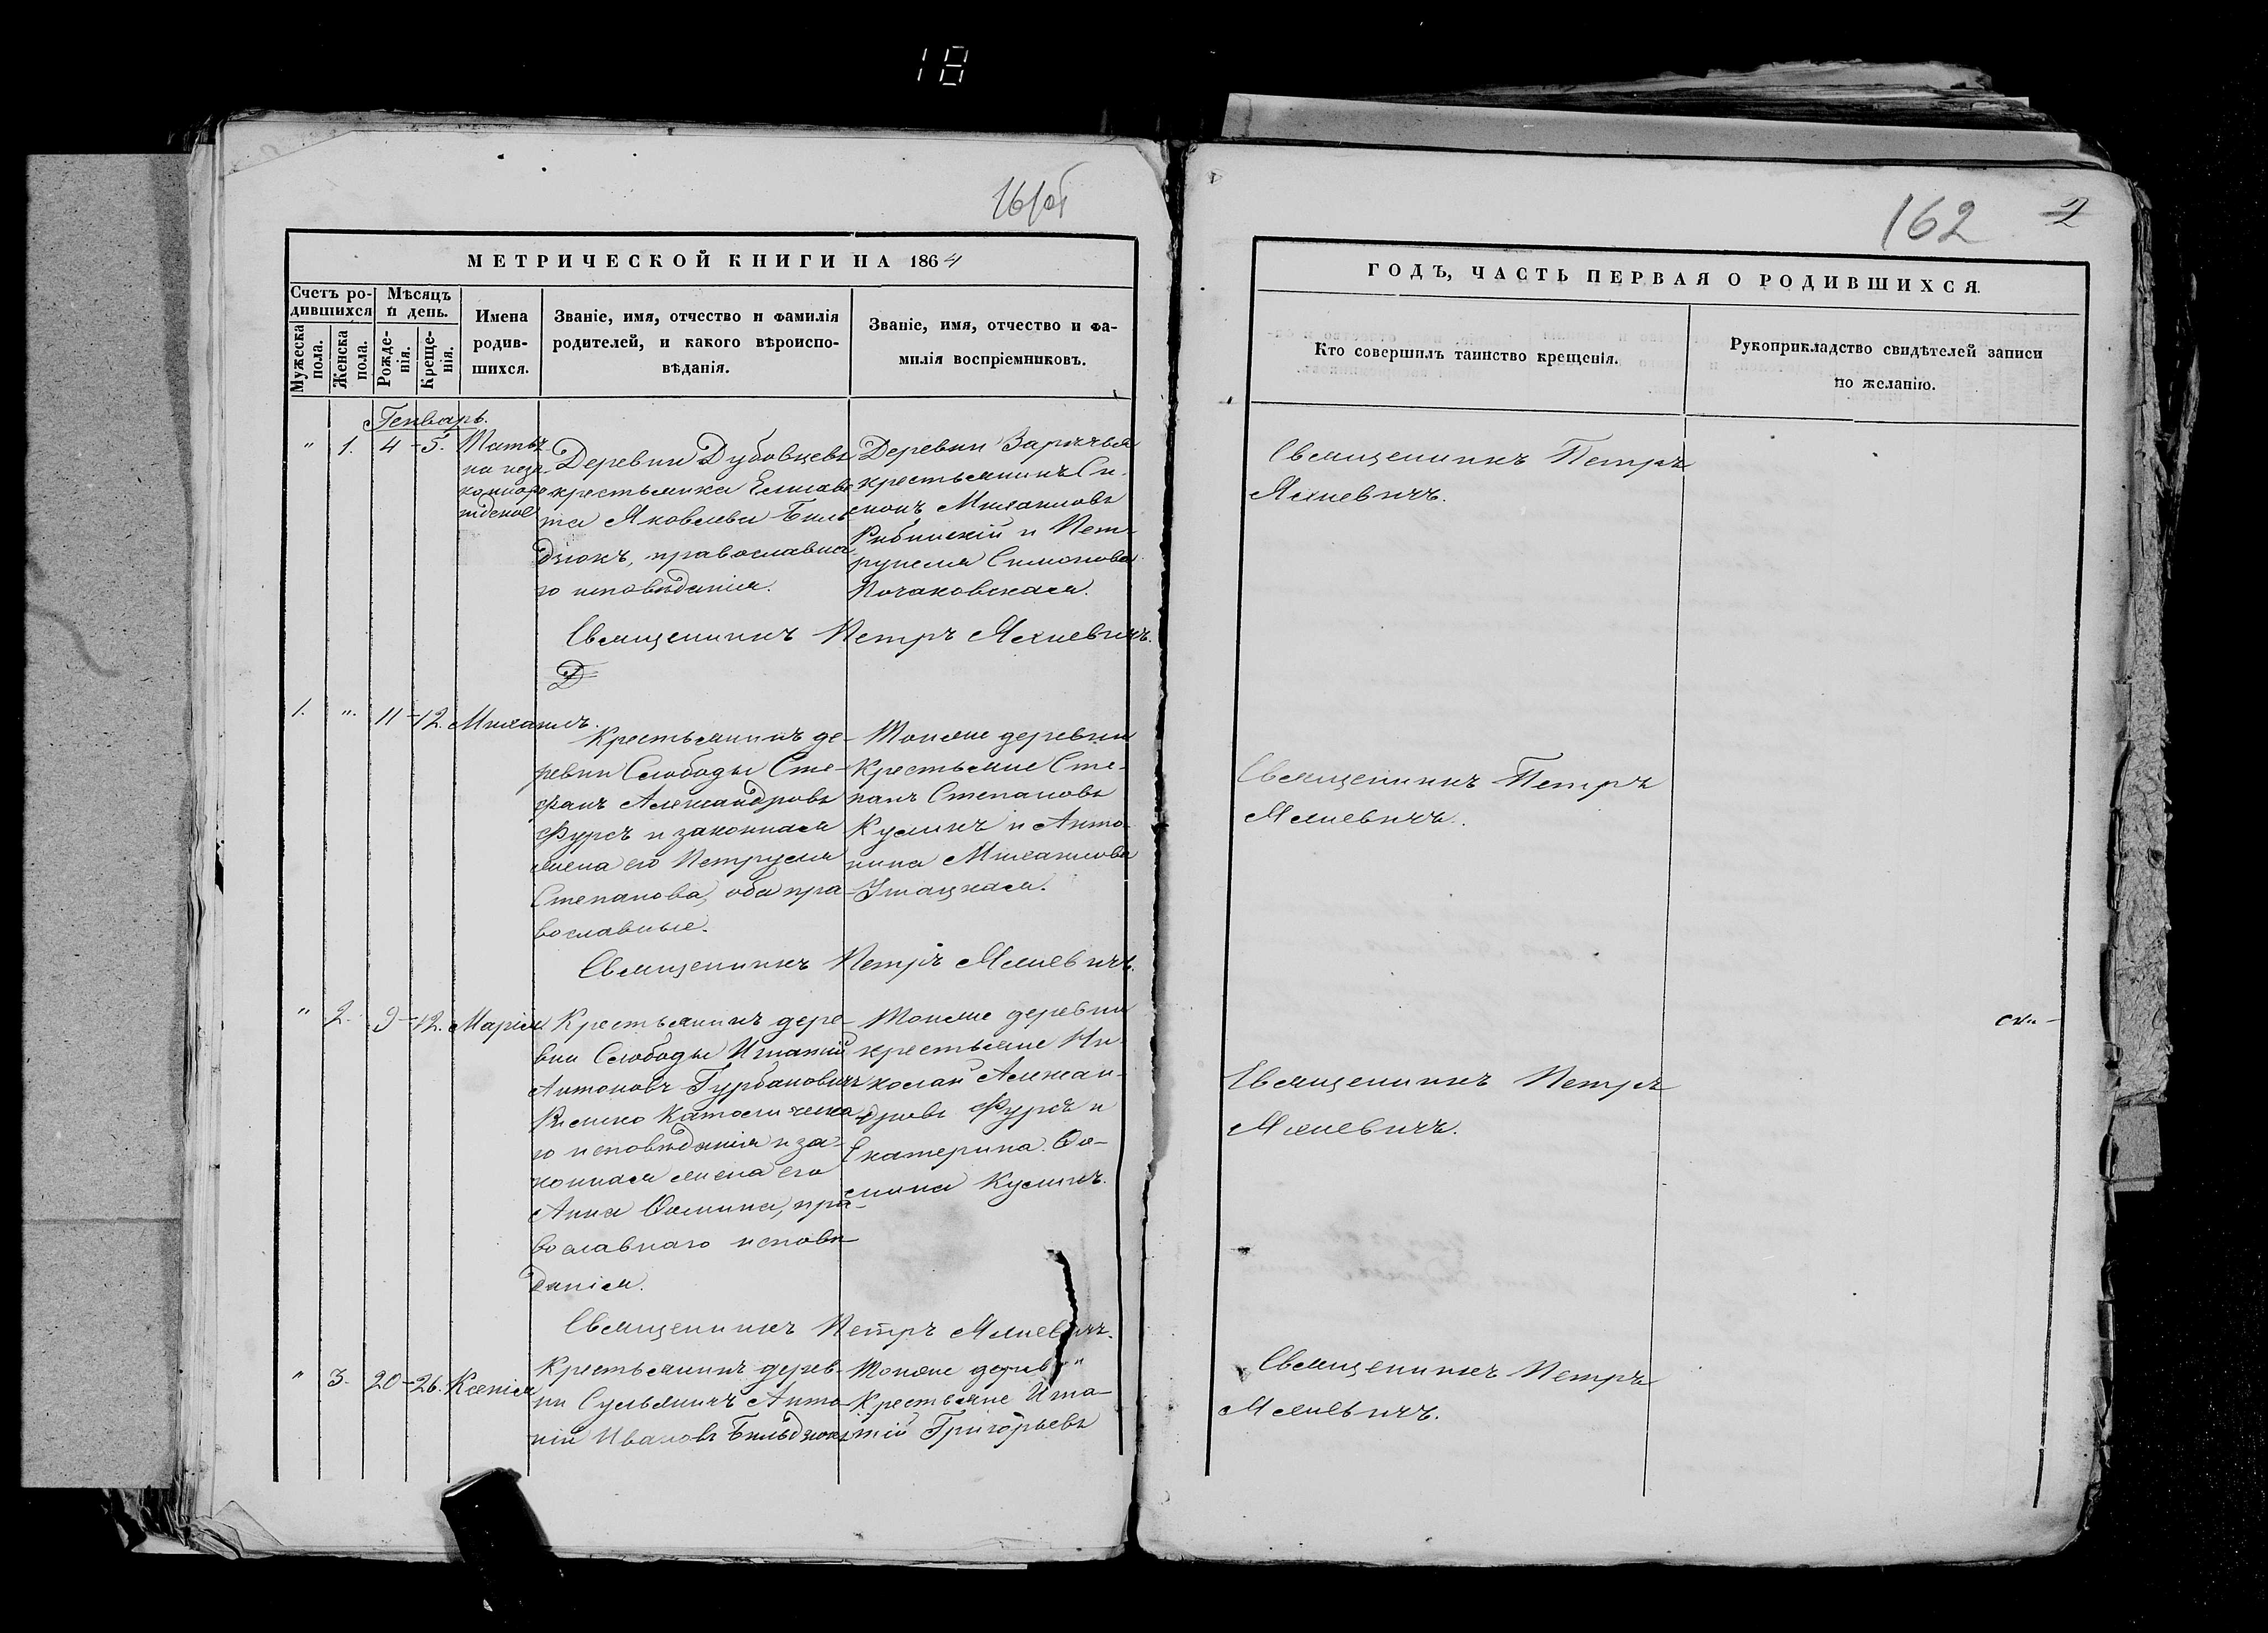 18
161об
МЕТРИЧЕСКОЙ КНИГИ НА 1864
Счетъ ро-
дившихся
Мужеска
пола.
Женска
пола.
Мѣсяцъ
и день.
Рожде-
нія.
Креще-
нія.
Имена
родив-
шихся.
Званіе, имя, отчество и фамилія
родителей, и какого вѣроиспо-
вѣданія.
Званіе, имя, отчество и фа-
милія воспріемниковъ.
Генварь.
" 1. 4 - 5.
Татья
на неза
конноро
жденое
Деревни Дубовцевъ
крестьянка Елисаве
та Яковлева Биль
дзюкъ, православна
го исповѣданія.
Деревни Зарѣчья
крестьянинъ Си-
монъ Михаиловъ
Рибинскій и Пет-
рунеля Симонова
Почаковская.
Священникъ Петръ Яхневичъ.
Д
1. ". 11 - 12. Михаилъ.
Крестьянинъ де-
ревни Слободы Сте-
фанъ Александровъ
Фурсъ и законная
жена его Петруеля
Степанова, оба пра
вославные.
Тойже деревни
Крестьяне Сте-
панъ Степановъ
Кузмичъ и Анто-
нина Михаилова
Ушацкая.
Священникъ Петръ Яхневичъ.
" 2. 9 - 12. Марія
Крестьянинъ дере-
вни Слободы Игнатій
Антоновъ Гурбановичъ
Римско Католическа
го исповѣданія и за-
конная жена его
Анна Фомина, пра-
вославнаго исповѣ
данія.
Тойже деревни
крестьяне Ни-
колай Алексан-
дровъ Фурсъ и
Екатерина Фо-
мина Кузмичъ.
Священникъ Петръ Яхневичъ.
" 3. 20 - 26. Ксенія
Крестьянинъ дерев-
ни Сульжичъ Анто
ній Ивановъ Бильдзюкъ
Тойже дерев
Крестьяне Игна-
тій Григорьевъ
162 2
ГОДЪ, ЧАСТЬ ПЕРВАЯ О РОДИВШИХСЯ.
Кто совершилъ таинство крещенія.
Рукоприкладство свидѣтелей записи
по желанію.
Священникъ Петръ
Яхневичъ.
Священникъ Петръ
Яхневичъ.
Священникъ Петръ
Яхневичъ.
Священникъ Петръ
Яхневичъ.